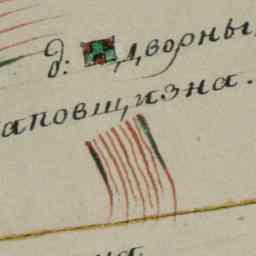 д: дворны
аповщизна.